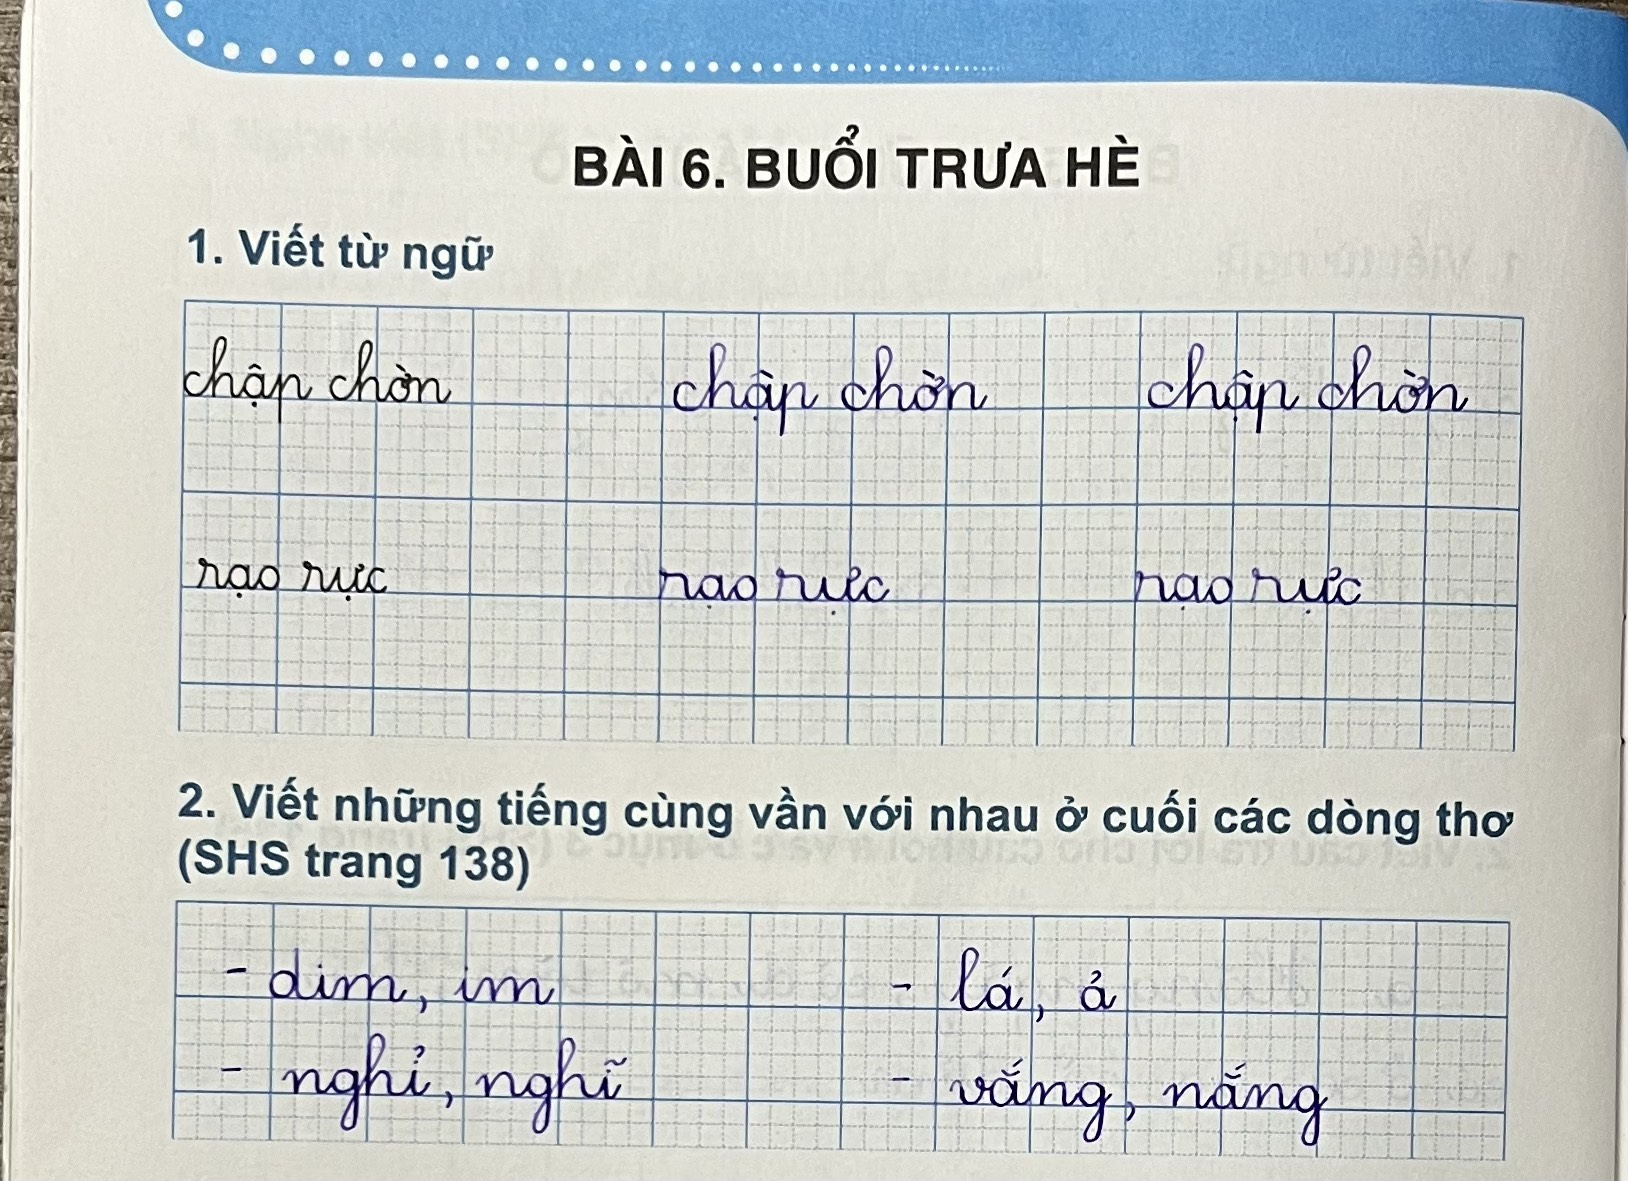 BÀI 6. BUỔI TRƯA HÈ
1. Viết từ ngữ
chập chờn chập chờn chập chờn
rạo rực rạo rực rạo rực
2. Viết những tiếng cùng vần với nhau ở cuối các dòng thơ
(SHS trang 138)
- dim, im - lá, ả
- nghỉ, nghĩ - vắng, nắng